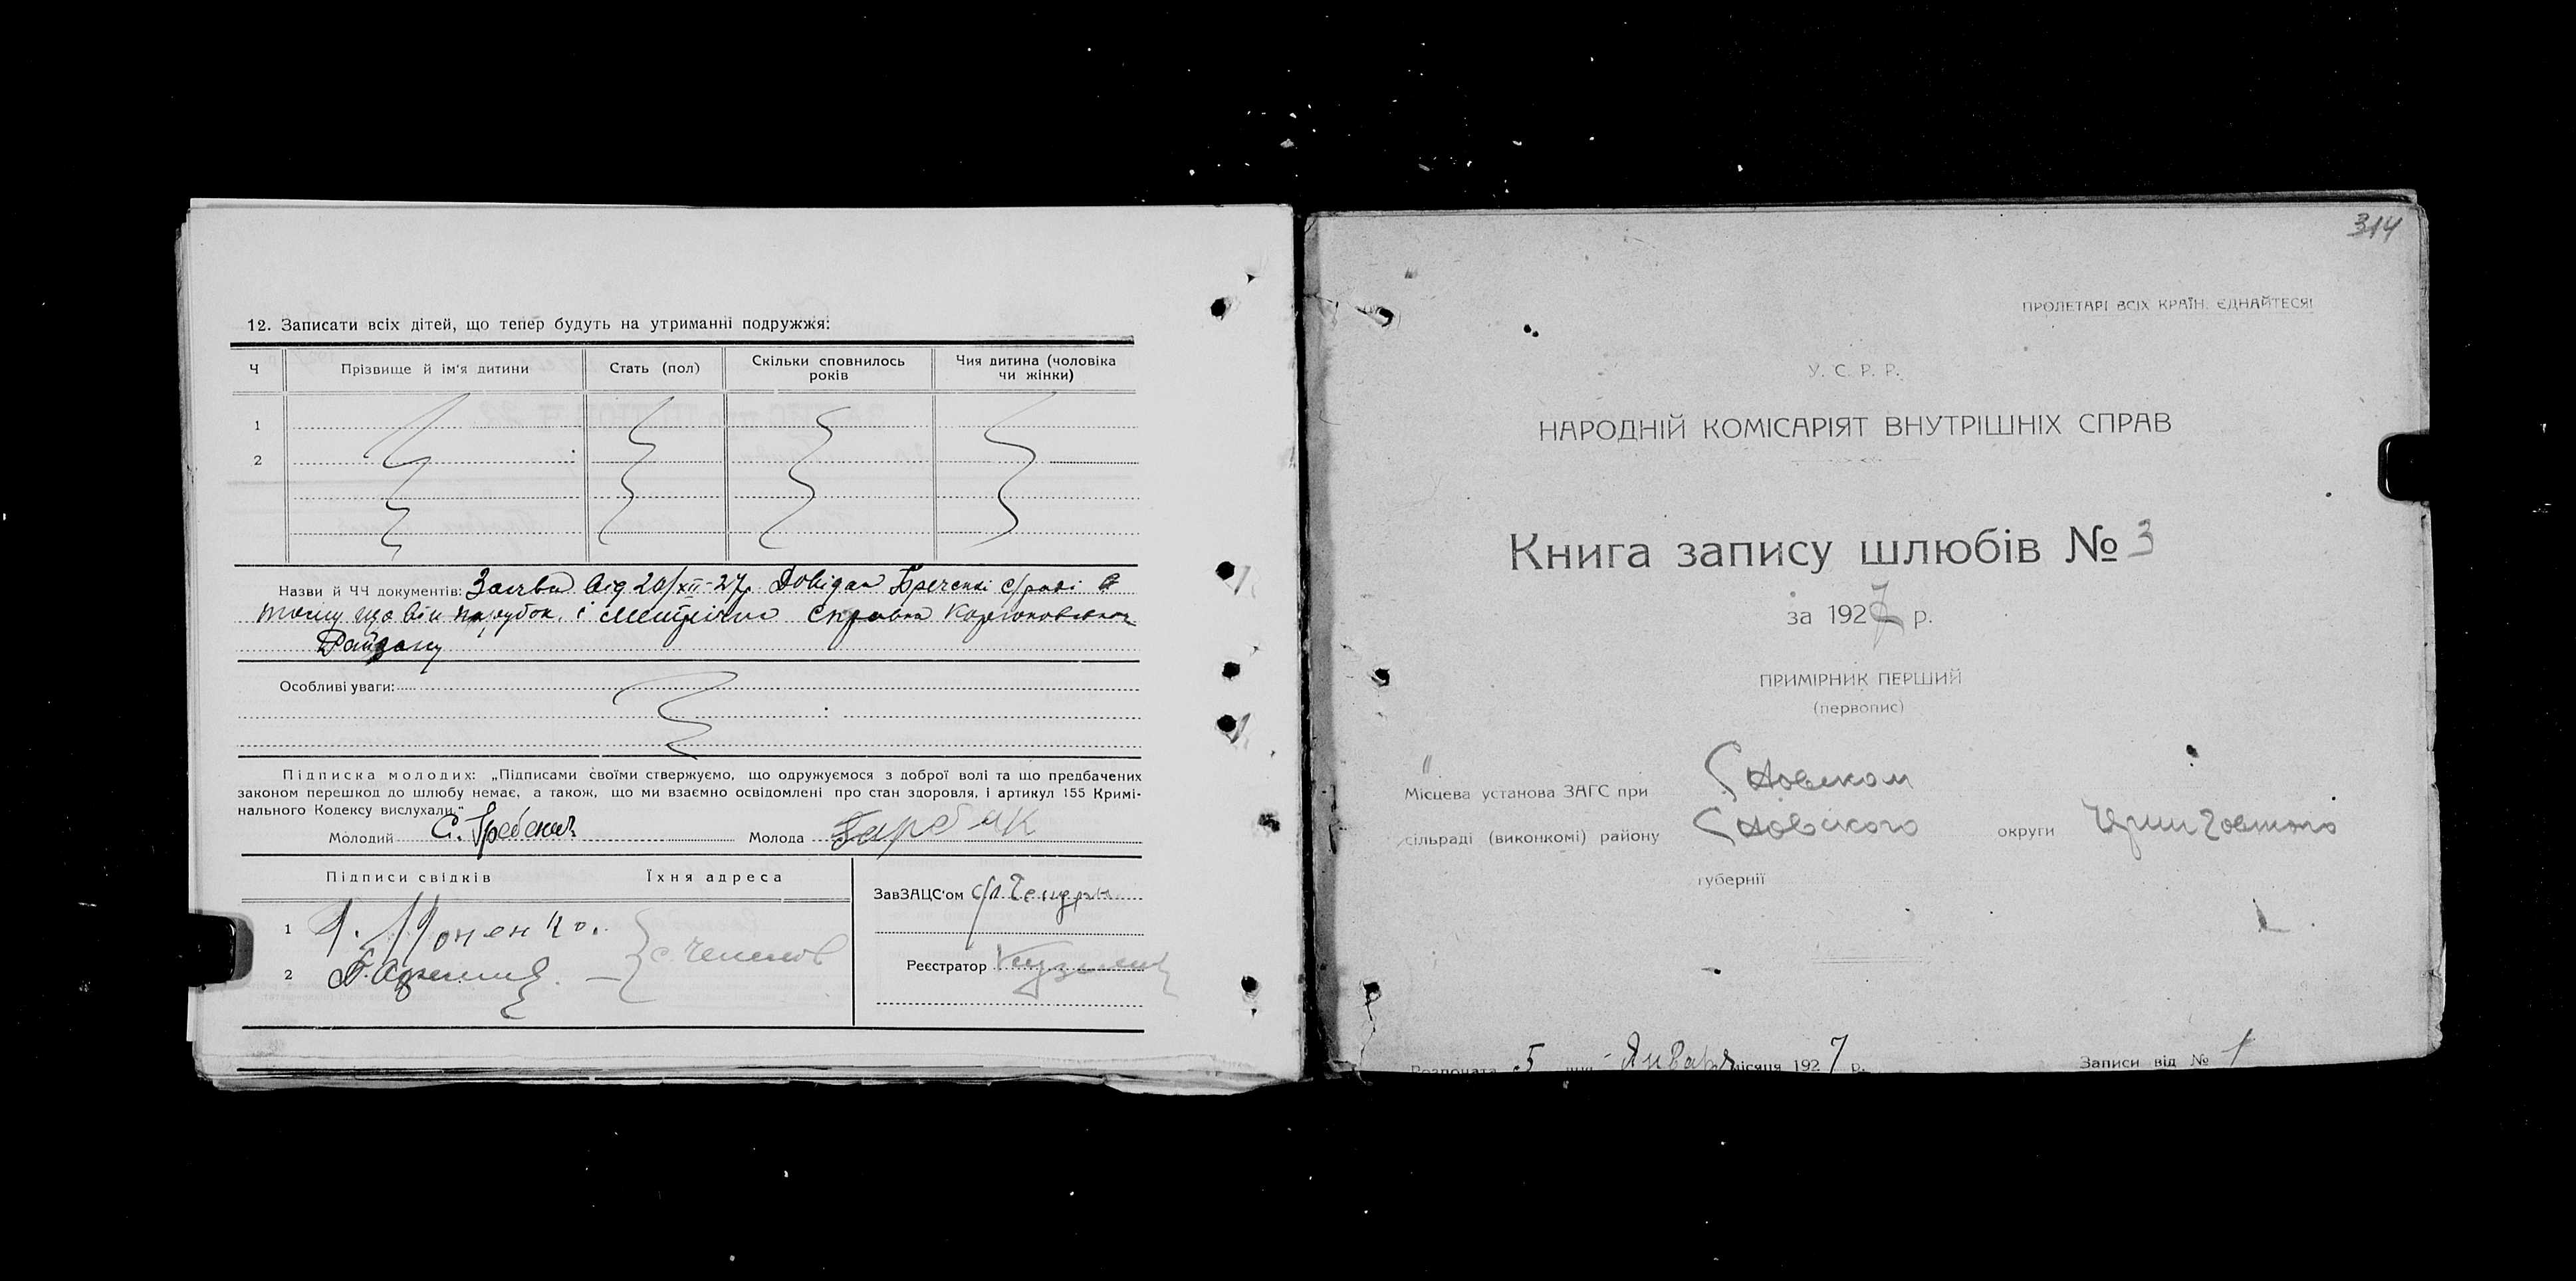 12. Записати всіх дітей, що тепер будуть на утриманні подружжя:
Ч
Прізвище й ім'я дитини
Стать (пол)
Скільки сповнилось
років
Чия дитина (чоловіка
чи жінки)
1
2
Назви й ЧЧ документів: Заява від 20/XII-27р. Довідка с/ради
тому що він парубок і метрична справка
Особливі уваги:
Підписка молодих: „Підписами своїми ствержуємо, що одружуємося з доброї волі та що предбачених
законом перешкод до шлюбу немає, а також, що ми взаємно освідомлені про стан здоровля, і артикул 155 Кримі-
нального Кодексу вислухали."
Молодий С. Молода
Підписи свідків Їхня адреса
1
2
ЗавЗАЦС'ом
Реєстратор
314
ПРОЛЕТАРІ ВСІХ КРАЇН, ЄДНАЙТЕСЯ!
У. С. Р. Р.
НАРОДНІЙ КОМІСАРІЯТ ВНУТРІШНІХ СПРАВ
Книга запису шлюбів № 3
за 1927 р.
ПРИМІРНИК ПЕРШИЙ
(первопис)
Місцева установа ЗАГС при
сільраді (виконкомі) району Сновского округи
губернії
Розпочата 5 дня Января місяця 1927 р.
Записи від № 1